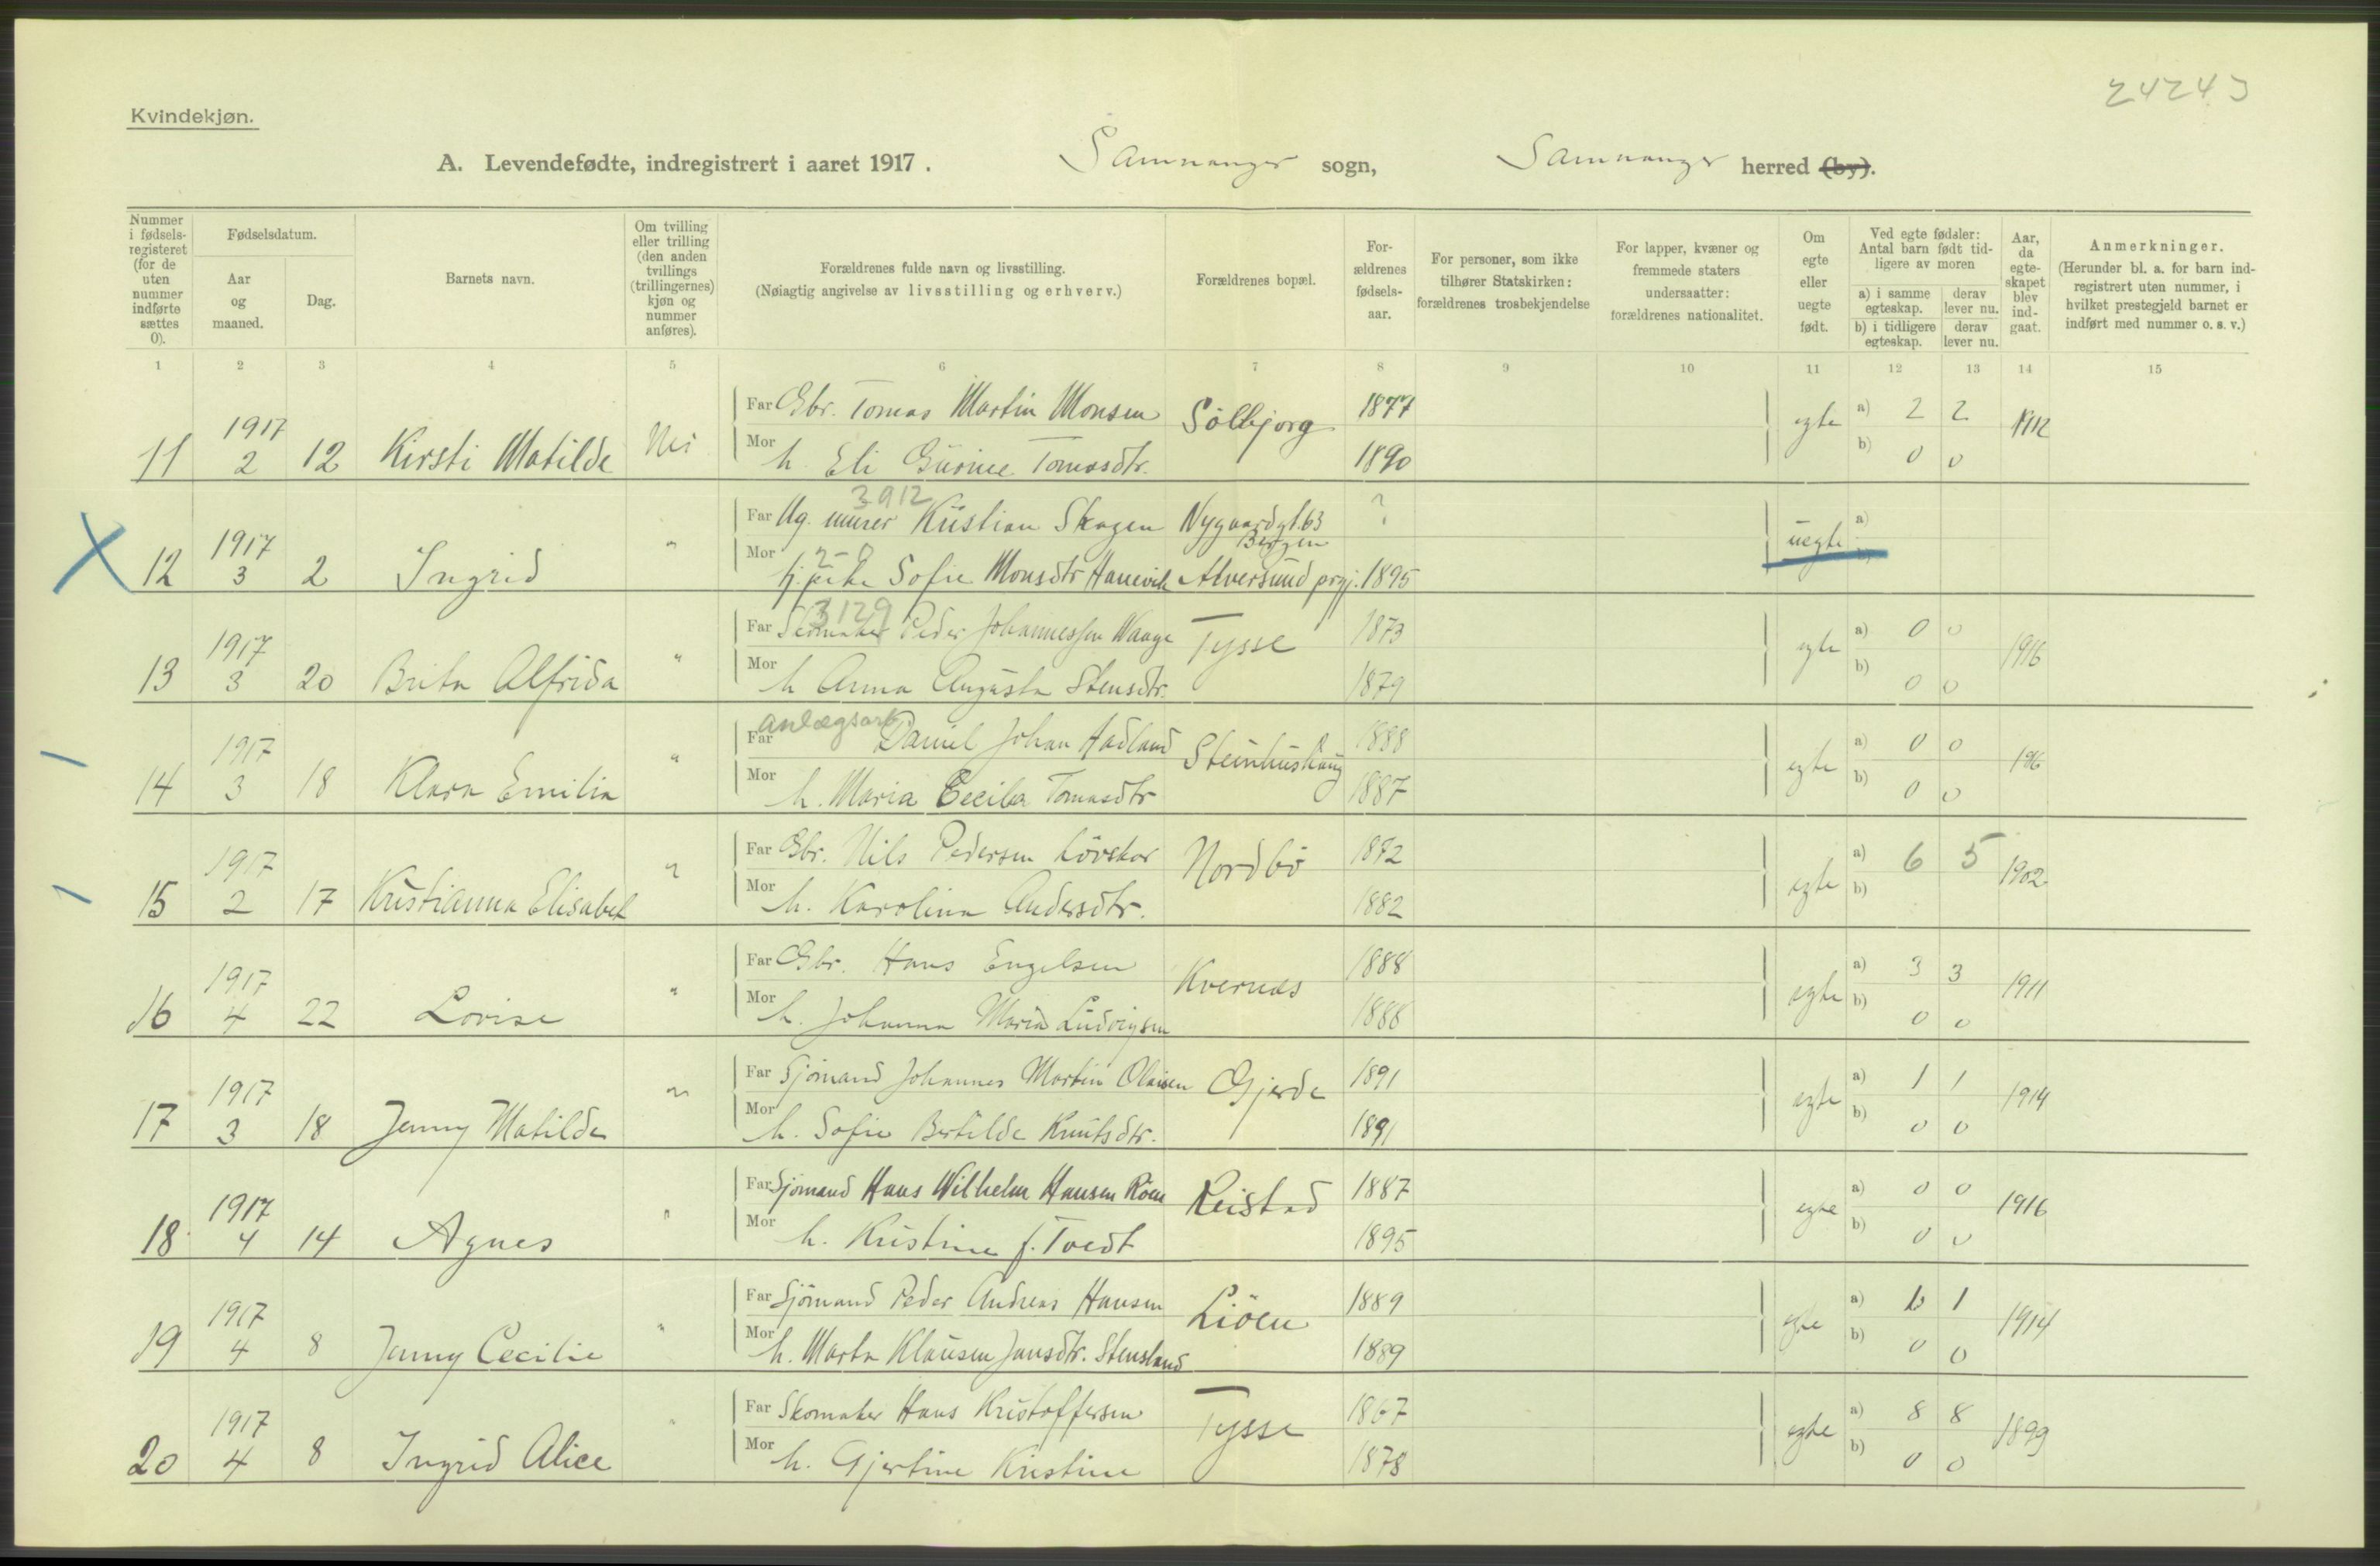 24243
Kvindekjøn.
A. Levendefødte, indregistrert i aaret 1917. Samnanger sogn, Samnanger herred (by).
Nummer i fødselsregisteret (for de uten nummer indførte sættes 0).
Fødselsdatum.
Aar og maaned.
Dag.
Barnets navn.
Om tvilling eller trilling (den anden tvillings (trillingernes) kjøn og nummer anføres).
Forældrenes fulde navn og livsstilling.
(Nøiagtig angivelse av livsstilling og erhverv.)
Forældrenes bopæl.
Forældrenes fødselsaar.
For personer, som ikke tilhører Statskirken: forældrenes trosbekjendelse
For lapper, kvæner og fremmede staters undersaatter: forældrenes nationalitet.
Om egte eller uegte født.
Ved egte fødsler: Antal barn født tidligere av moren
a) i samme egteskap.
derav lever nu.
b) i tidligere egteskap.
derav lever nu.
Aar, da egteskapet blev indgaat.
Anmerkninger.
(Herunder bl. a. for barn indregistrert uten nummer, i hvilket prestegjeld barnet er indført med nummer o. s. v.)
1 2 3 4 5 6 7 8 9 10 11 12 13 14 15
Far Gbr. Tomas Martin Monsen Sölbjorg 1877 egte a) 2 2 1912
11 1917 2 12 Kirsti Matilde Nei
Mor h. Eli Gurine Tomasdtr. 1890 b) 0 0
3912
Far Ug. murer Kristian Skagen Nygaardsgt. 63 Bergen ? uegte a)
12 1917 3 2 Ingrid "
Mor tj.pike Sofie Monsdtr Hanevik Alversund prgj. 1895 b)
3129
Far Skomaker Peder Johannessen Waage Tysse 1873 egte a) 0 0 1916
13 1917 3 20 Brita Alfrida "
Mor h Anna Augusta Stensdtr. 1879 b) 0 0
Far anlægsarb. Daniel Johan Hadland Steinhushaug 1888 egte a) 0 0 1916
14 1917 3 18 Klara Emilia "
Mor h. Maria Cecilia Tomasdtr 1887 b) 0 0
Far Gbr. Nils Pedersen Lövskar Nordbö 1872 egte a) 6 5 1902
15 1917 2 17 Kristianna Elisabet "
Mor h. Karolina Andersdtr. 1882 b)
Far Gbr. Hans Engelsen Kvernes 1888 egte a) 3 3 1911
16 1917 4 22 Lovise "
Mor h. Johanna Maria Ludvigsen 1888 b) 0 0
Far Sjömand Johannes Martin Olaisen Gjerde 1891 egte a) 1 1 1914
17 1917 3 18 Jenny Matilde "
Mor h. Sofie Bertilde Knutsdtr. 1891 b) 0 0
Far Sjömand Hans Wilhelm Hansen Röen Reistad 1887 egte a) 0 0 1916
18 1917 4 14 Agnes "
Mor h. Kristine f. Tvedt 1895 b) 0 0
Far Sjömand Peder Andreas Hansen Liöen 1889 egte a) 1 1 1914
19 1917 4 8 Jenny Cecilie "
Mor h. Marta Klausen Jansdtr. Stensland 1889 b) 0 0
Far Skomaker Hans Kristoffersen Tysse 1867 egte a) 8 8 1899
20 1917 4 8 Ingrid Alice "
Mor h. Gjertine Kristine 1878 b) 0 0